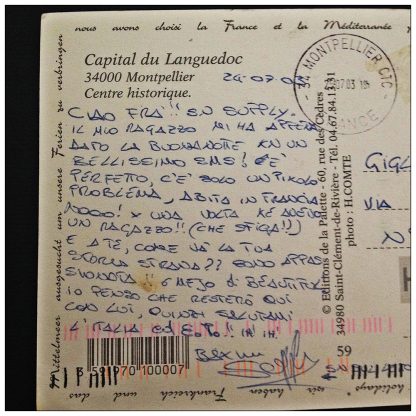 nous avons choisi la France et la Méditerranée
Capital du Languedoc
34000 Montpellier
Centre historique.
34 MONTPELLIER CTC
07 03
FRANCE
CIAO FRÀ!! SN SUPPLY..
IL MIO RAGAZZO MI HA APPENA
DATO LA BUONANOTTE KN UN
BELLISSIMO SMS! È
PERFETTO, C'È SOLO UN PIKOLO
PROBLEMA, ABITA IN FRANCIA
NOOO! X UNA VOLTA KE AVEVO
UN RAGAZZO!! (CHE SFIGA!!)
E A TE, COME VA LA TUA
STORIA STRANA?? SONO APPAS
SIONATA!! MEJO DI BEAUTIFUL
IO PENSO CHE RESTERÒ QUI
CON LUI, QUINDI SALUTAMI
L'ITALIA ED
GIGL
VIA
© Editions de la Palette - 60, rue des Cèdres
34980 Saint-Clément-de-Rivière - Tél. 04.67.84.13.31
photo : H.COMTE
59
100007
Mittelmeer ausgesucht um unsere Ferien zu verbringen
wir haben Frankreich und das
holidays